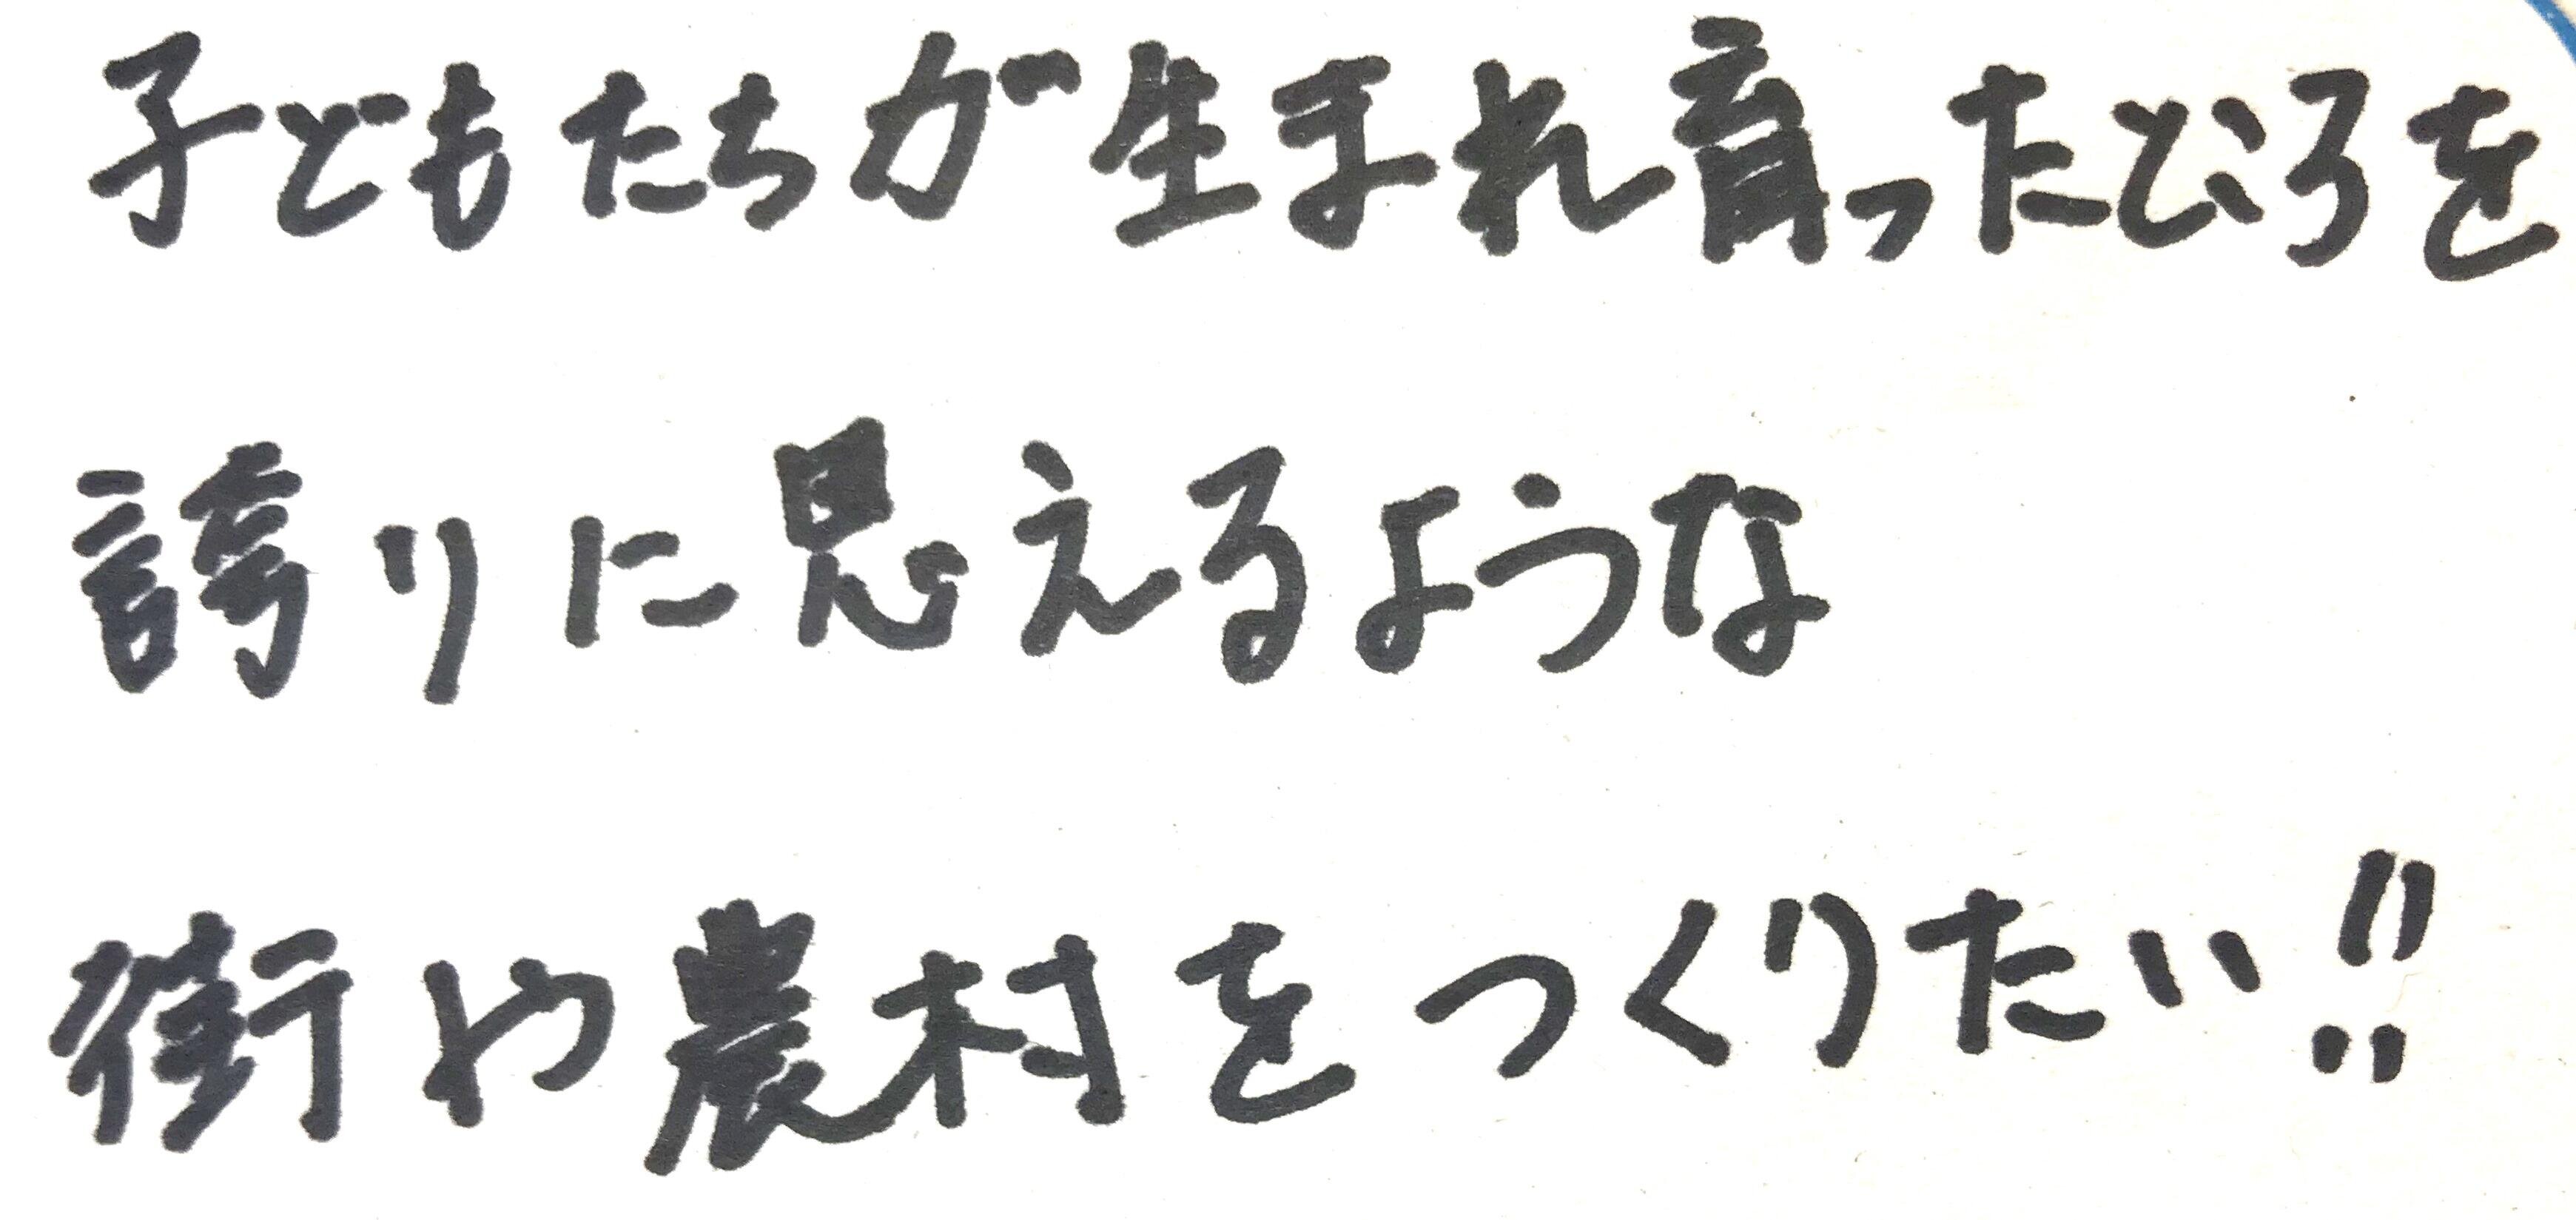 子どもたちが生まれ育ったところを
誇りに思えるような
街や農村をつくりたい!!